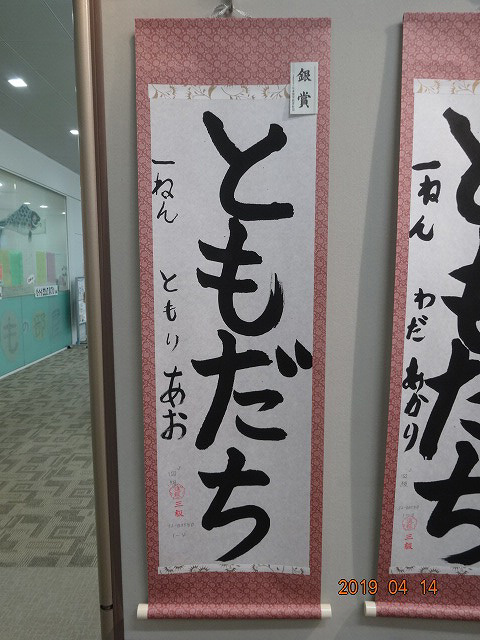 銀賞
ともだち
一ねん ともり あお
三級
一ねん わだ あかり
三級
2019 04 14